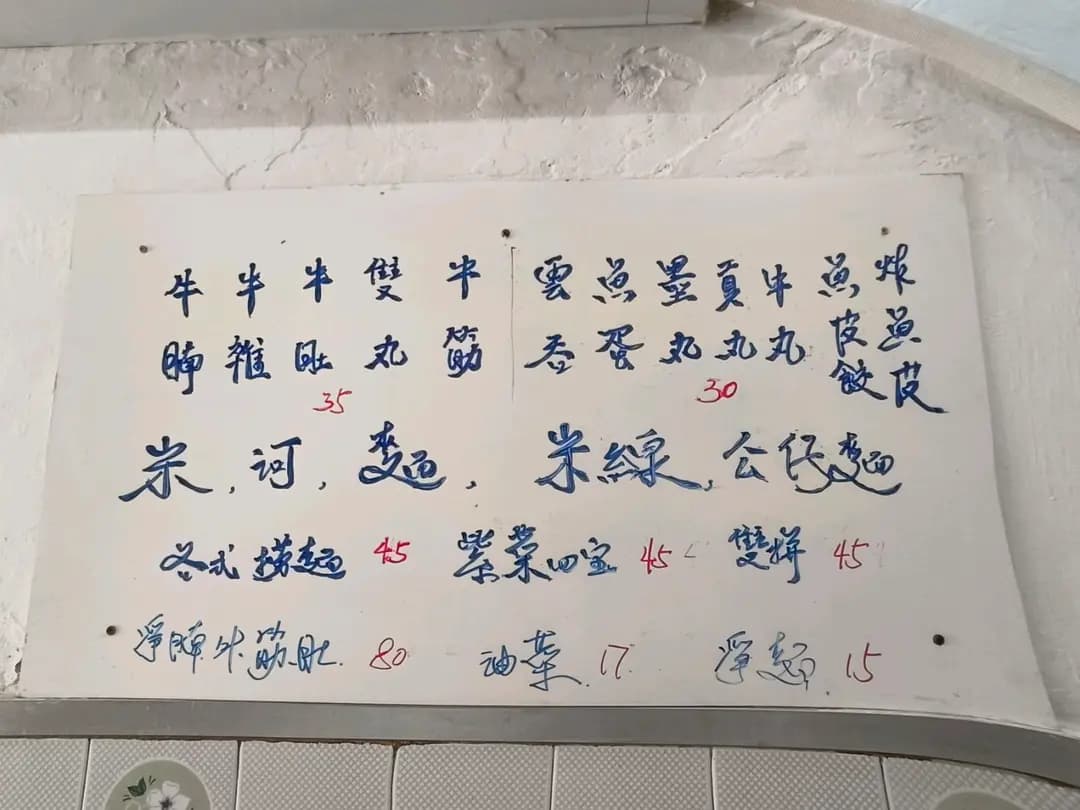 牛腩
牛雜
牛肚
雙丸
牛筋
35
雲吞
魚蛋
墨丸
貢丸
牛丸
魚皮餃
炸魚皮
30
米, 河, 麵, 米線, 公仔麵
各式撈麵 45 紫菜四宝 45 雙拼 45
淨腩牛筋肚. 80 油菜. 17 淨麵. 15